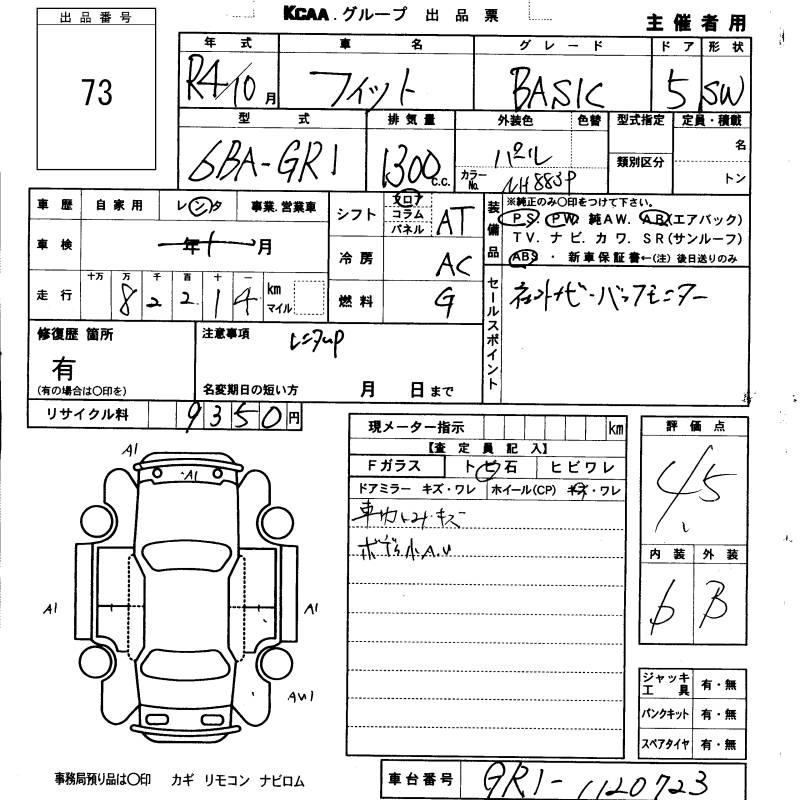 KCAA.グループ 出品票
主催者用
出品番号
73
年式 車名 グレード ドア 形状
R4/10月 フィット BASIC 5 SW
型式 排気量 外装色 色替 型式指定 定員・積載
6BA-GR1 1300c.c. パール カラーNo. NH883P 類別区分 名 トン
車歴 自家用 レンタ 事業.営業車
シフト フロア コラム パネル AT
装備品 ※純正のみ〇印をつけて下さい。
PS. PW. 純AW. AB(エアバック)
TV. ナビ. カワ. SR(サンルーフ)
ABS ・ 新車保証書←(注)後日送りのみ
車検 年 月
冷房 AC
走行 十万 万 千 百 十 一 km マイル
8 2 2 1 4
燃料 G
セールスポイント
ネットナビ・バックモニター
修復歴 箇所
有
(有の場合は〇印を)
注意事項
レンタup
名変期日の短い方 月 日まで
リサイクル料 9350円
現メーター指示 km
【査定員記入】
Fガラス トビ石 ヒビワレ
ドアミラー キズ・ワレ ホイール(CP) キズ・ワレ
車内汚れ・キズ
ボディ小A.U
評価点
4.5
内装 外装
B
A1
A1
A1 A1
AU1
ジャッキ工具 有・無
パンクキット 有・無
スペアタイヤ 有・無
事務局預り品は〇印 カギ リモコン ナビロム
車台番号 GR1-1120723